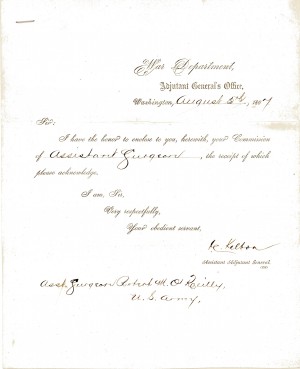 War Department,
Adjutant General's Office,
Washington, August 5th, 1867
Sir:
I have the honor to enclose to you, herewith, your Commission
of Assistant Surgeon, the receipt of which
please acknowledge.
I am, Sir,
Very respectfully,
Your obedient servant,
Kelton
Assistant Adjutant General.
Asst. Surgeon Robert M. O'Reilly,
U.S. Army.